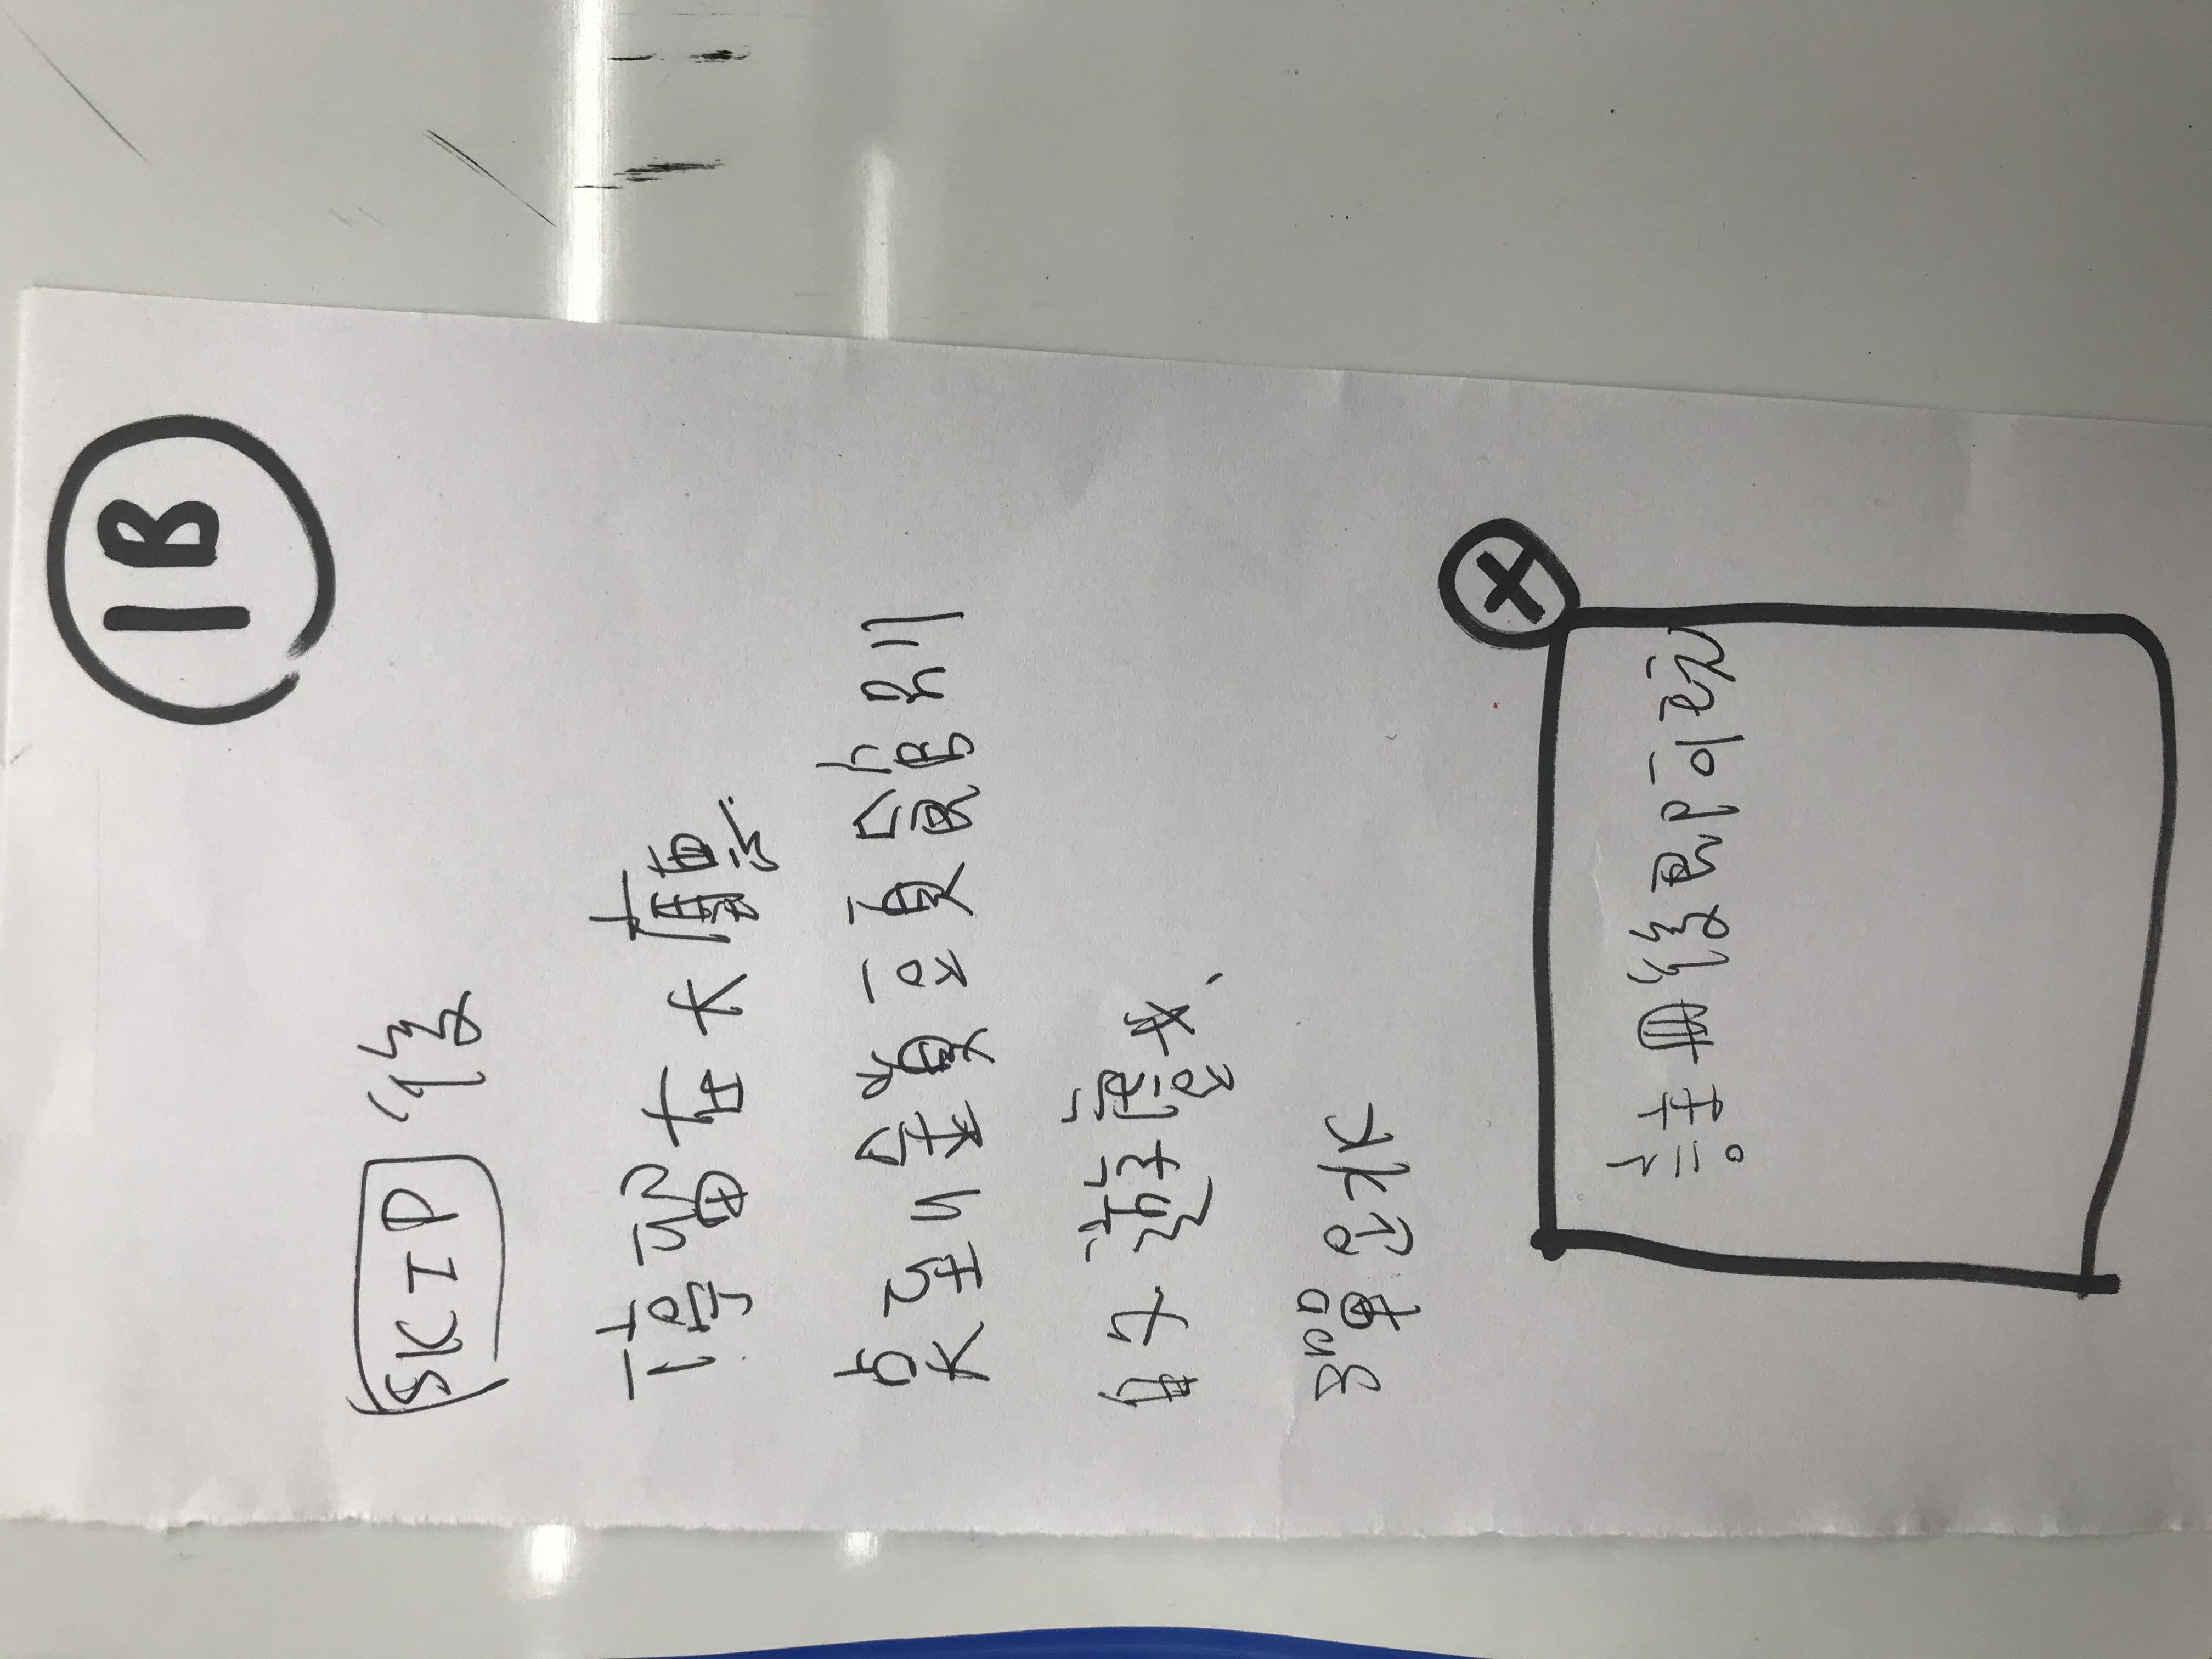 1B
SKIP 後
停留在大廳
点到鎖頭館別
的遊戲
彈跳
註冊後即可玩